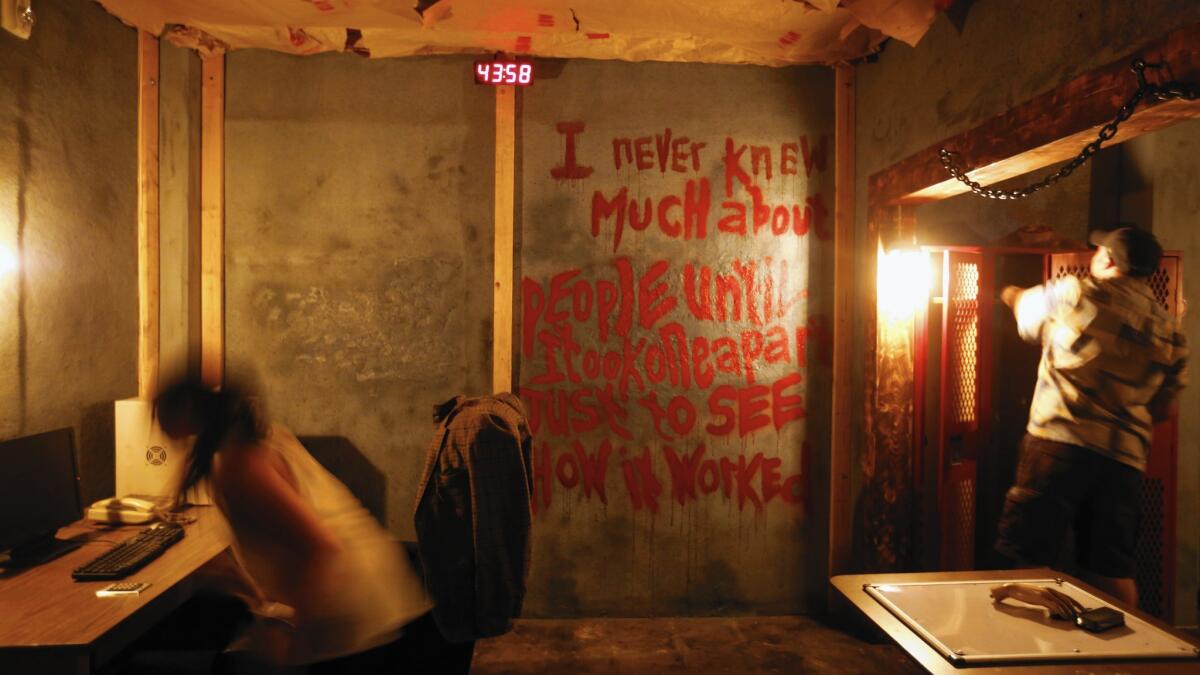 43:58
I nEVEr knEW
MucH about
pEoplE until
It took one apart
Just to SEE
HoW it WorkEd